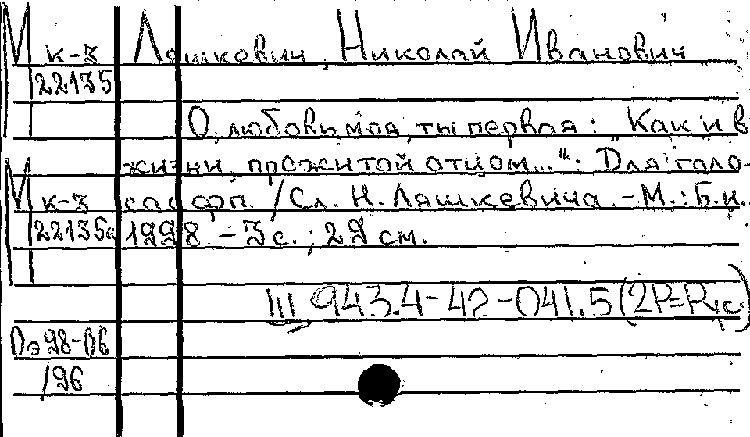 М к-з Ляшкович, Николай Иванович
22135
О, любовь моя, ты первая: "Как и в
жизни, прожитой отцом...": Для голо-
М к-з са с фп. / Сл. Н. Ляшкевича. - М.: Б.и.
22135а 1998 - 3 с.; 29 см.
Ш 943.4-42-041.5(2Р=Р
Оэ98-06
/96